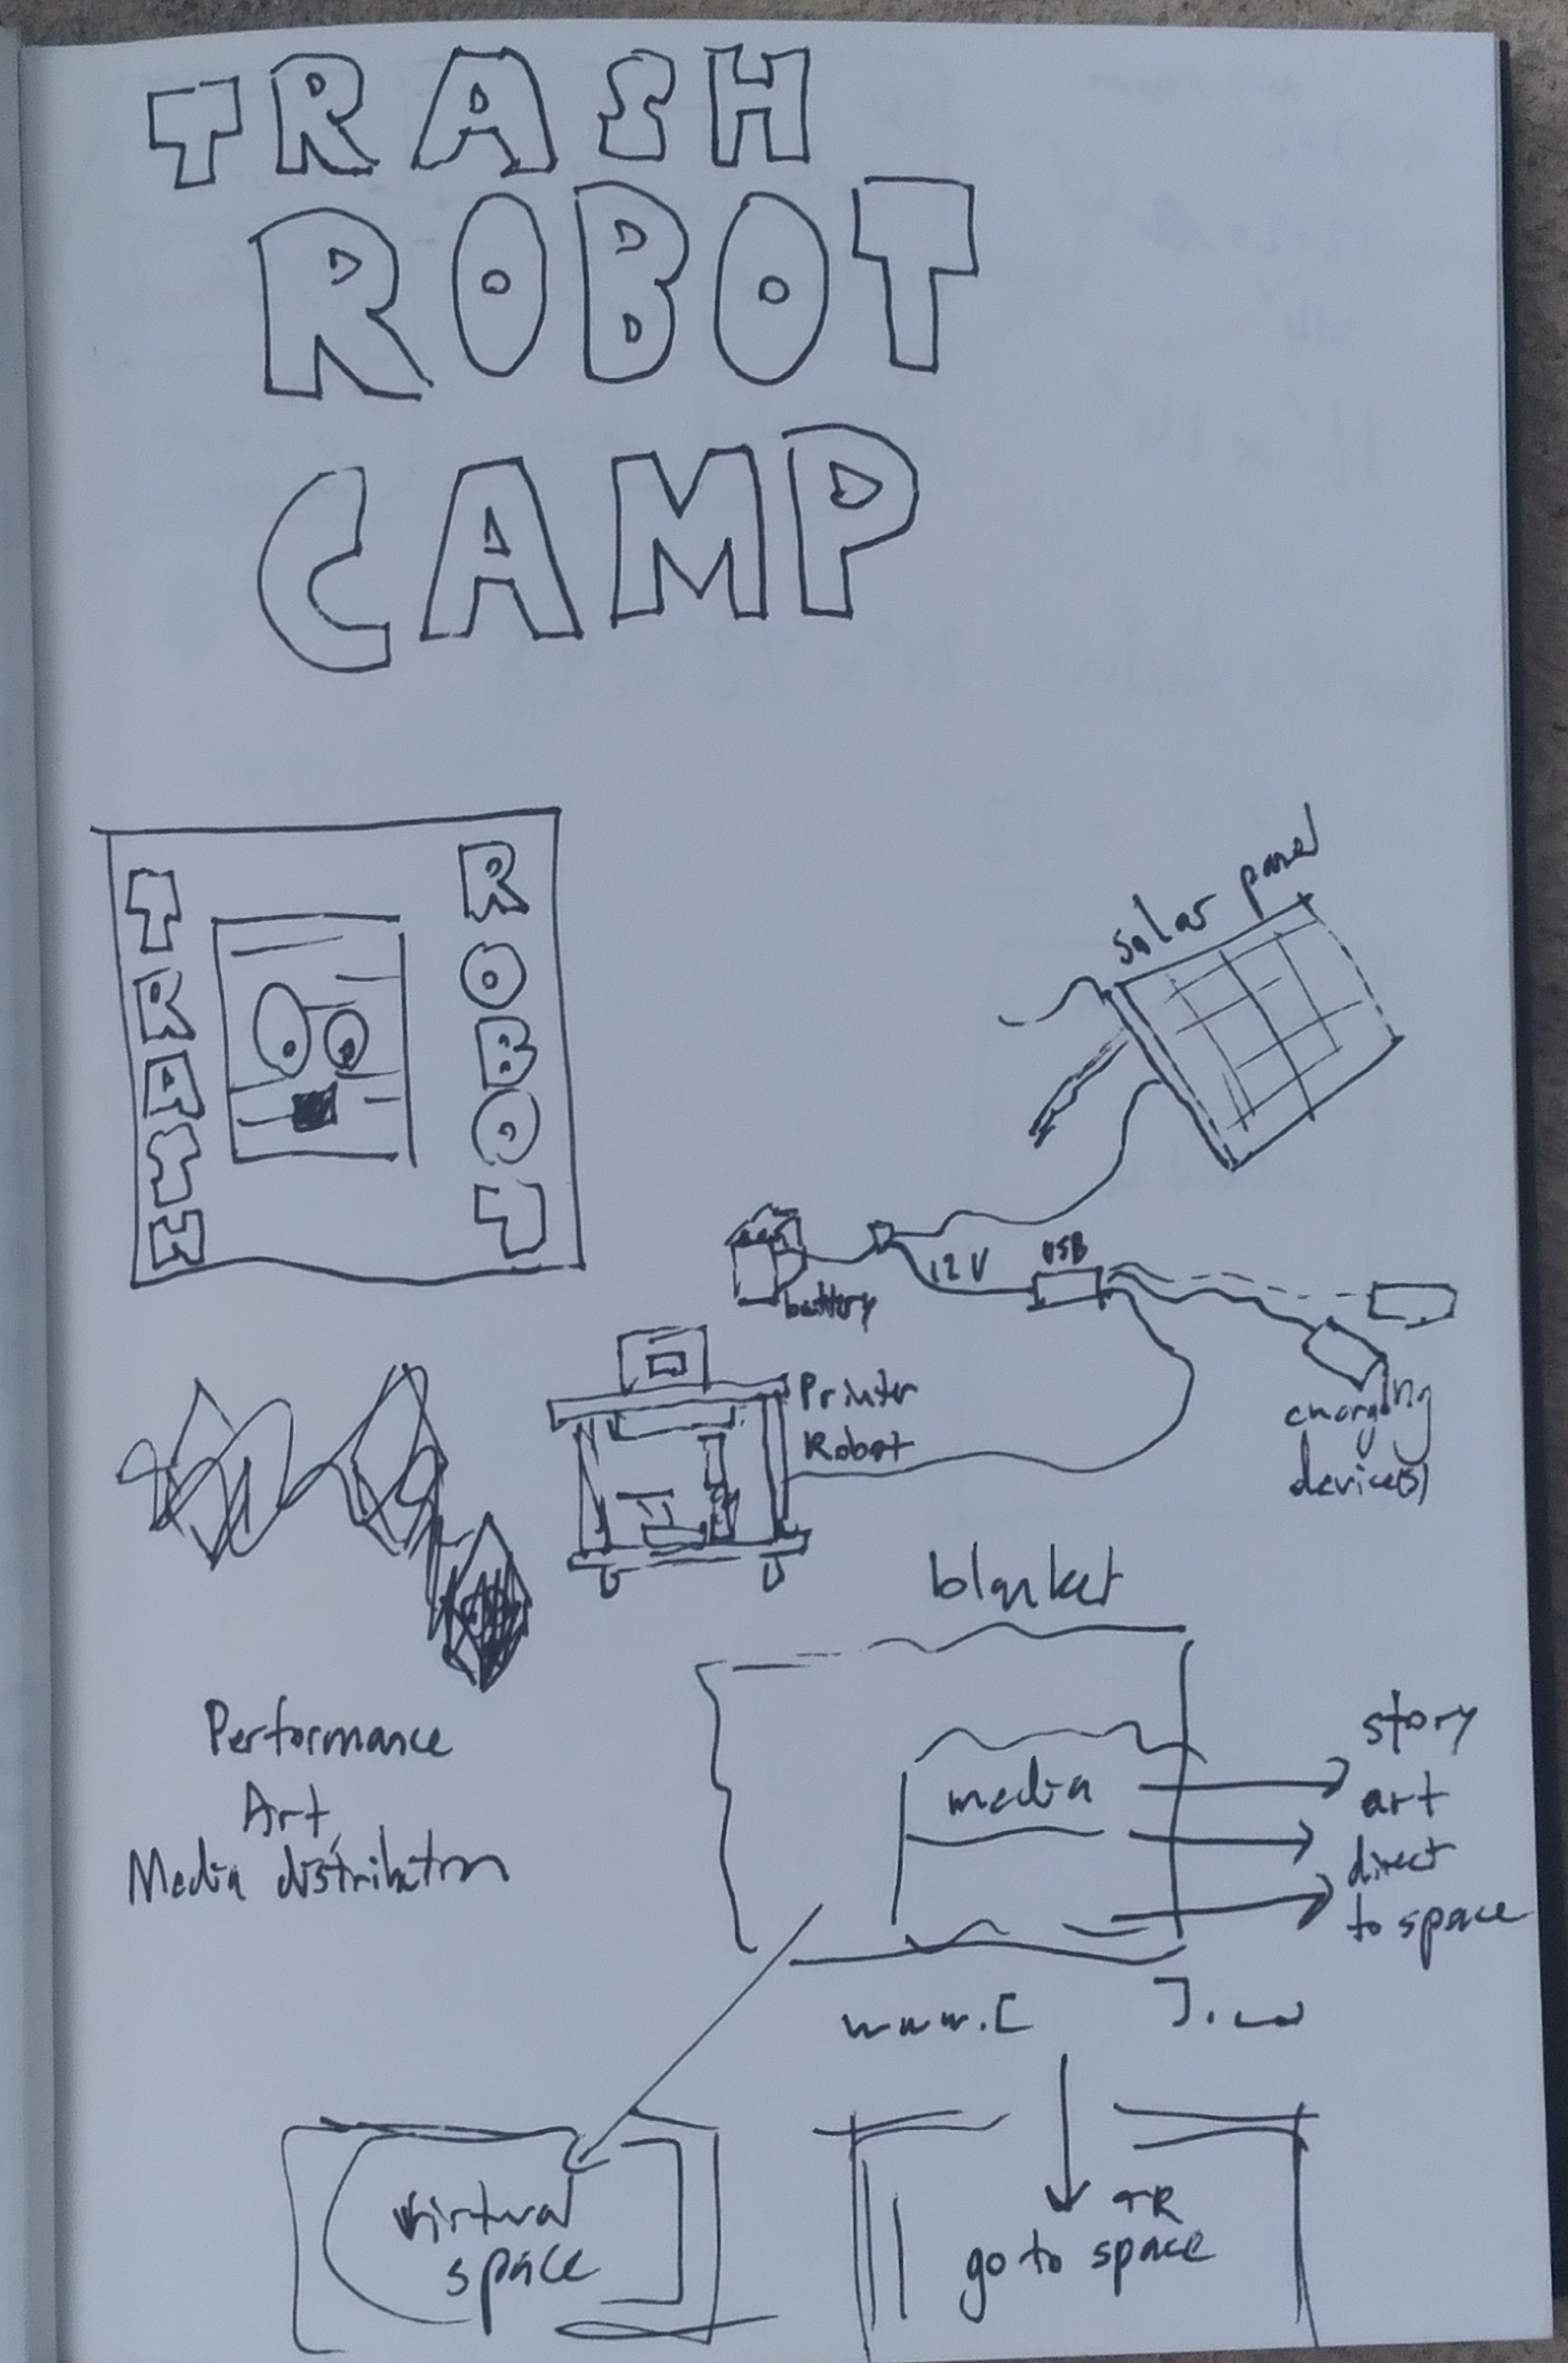 TRASH
ROBOT
CAMP
TRASH
ROBOT
solar panel
12V
USB
battery
Printer
Robot
charging
device(s)
blanket
Performance
Art
Media distribution
media
story
art
direct
to space
www.[ ].
virtual
space
TR
go to space